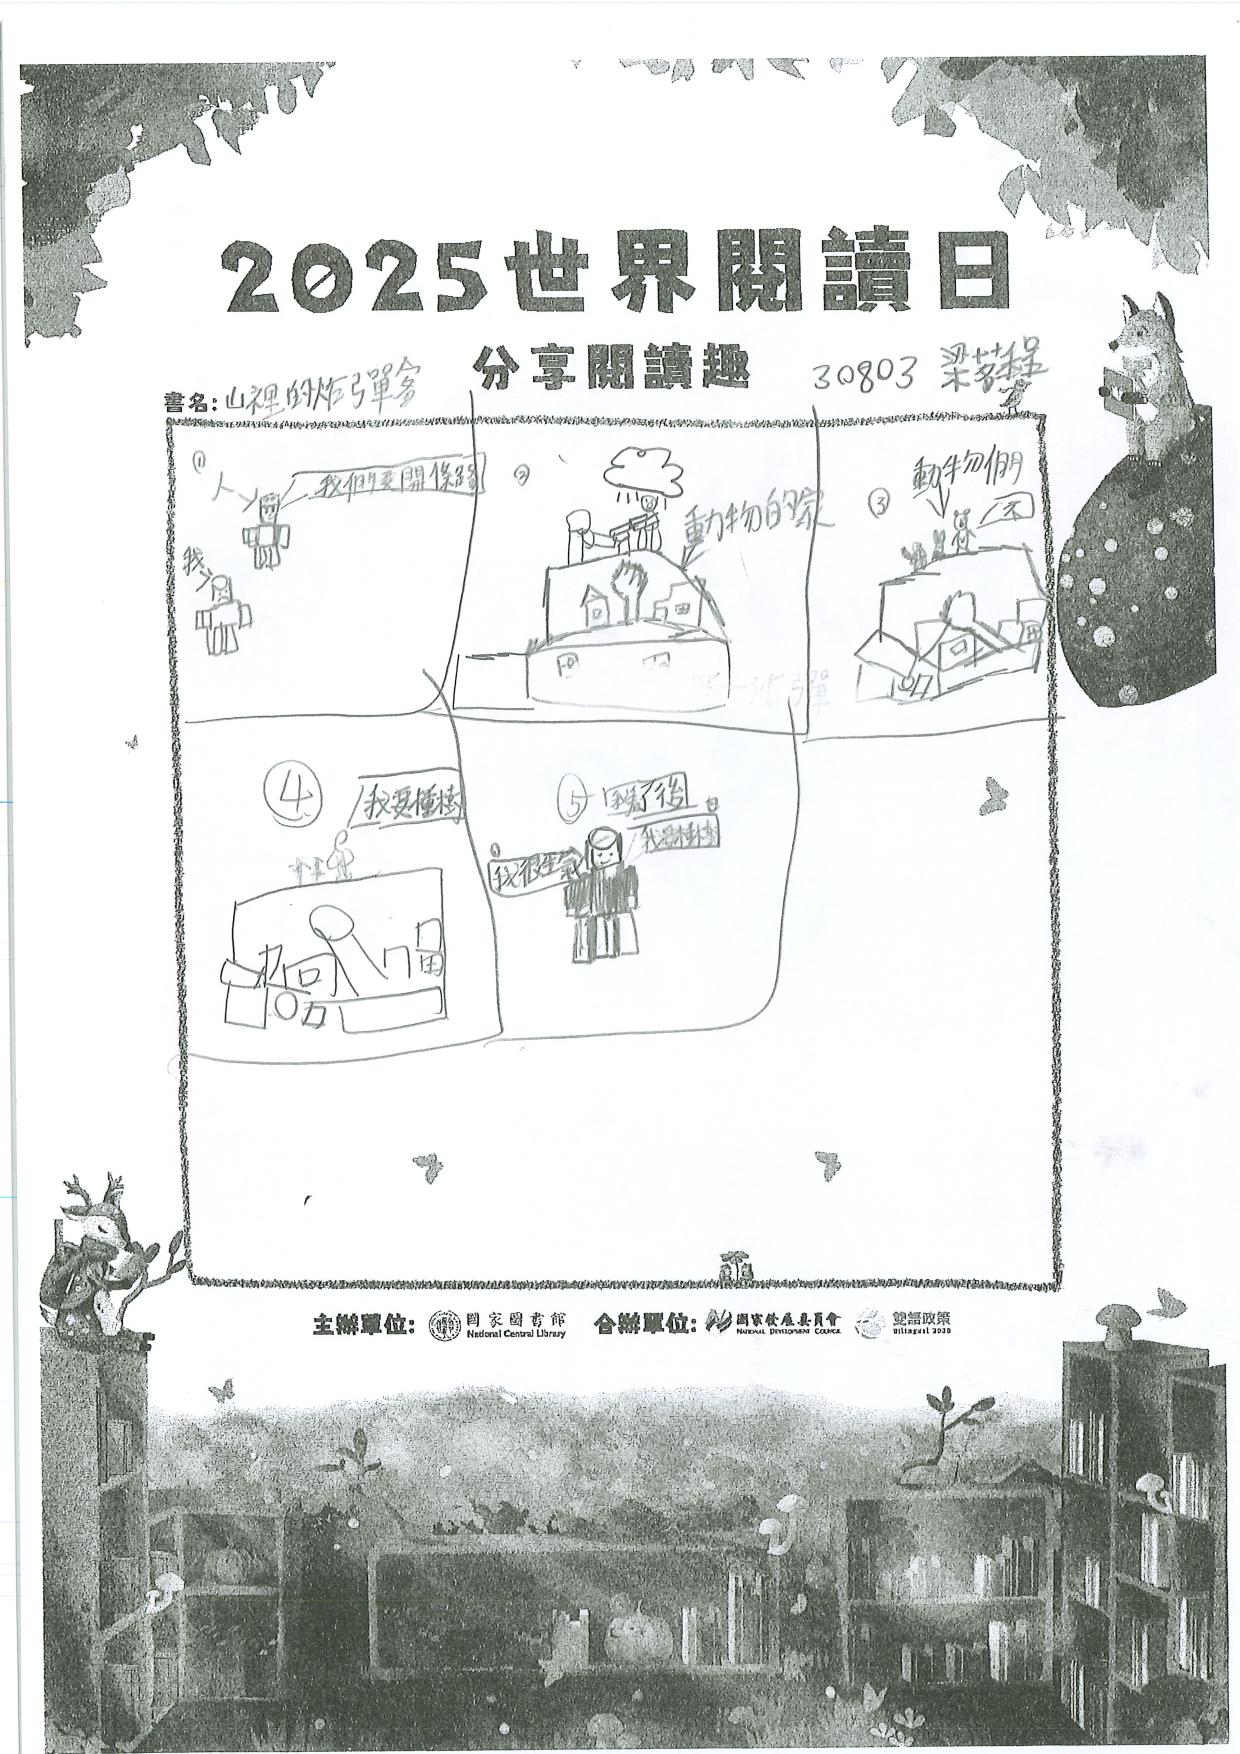 2025世界閱讀日
分享閱讀趣
30803 梁茗程
書名:山裡的炸彈客
①
人
我們要開條路
我
②
動物的家
③
動物們
不
炸彈
④
我要種樹
⑤
看了後
我很生氣
我要種樹
主辦單位: 國家圖書館 National Central Library 合辦單位: 國家發展委員會 NATIONAL DEVELOPMENT COUNCIL 雙語政策 Bilingual 2030